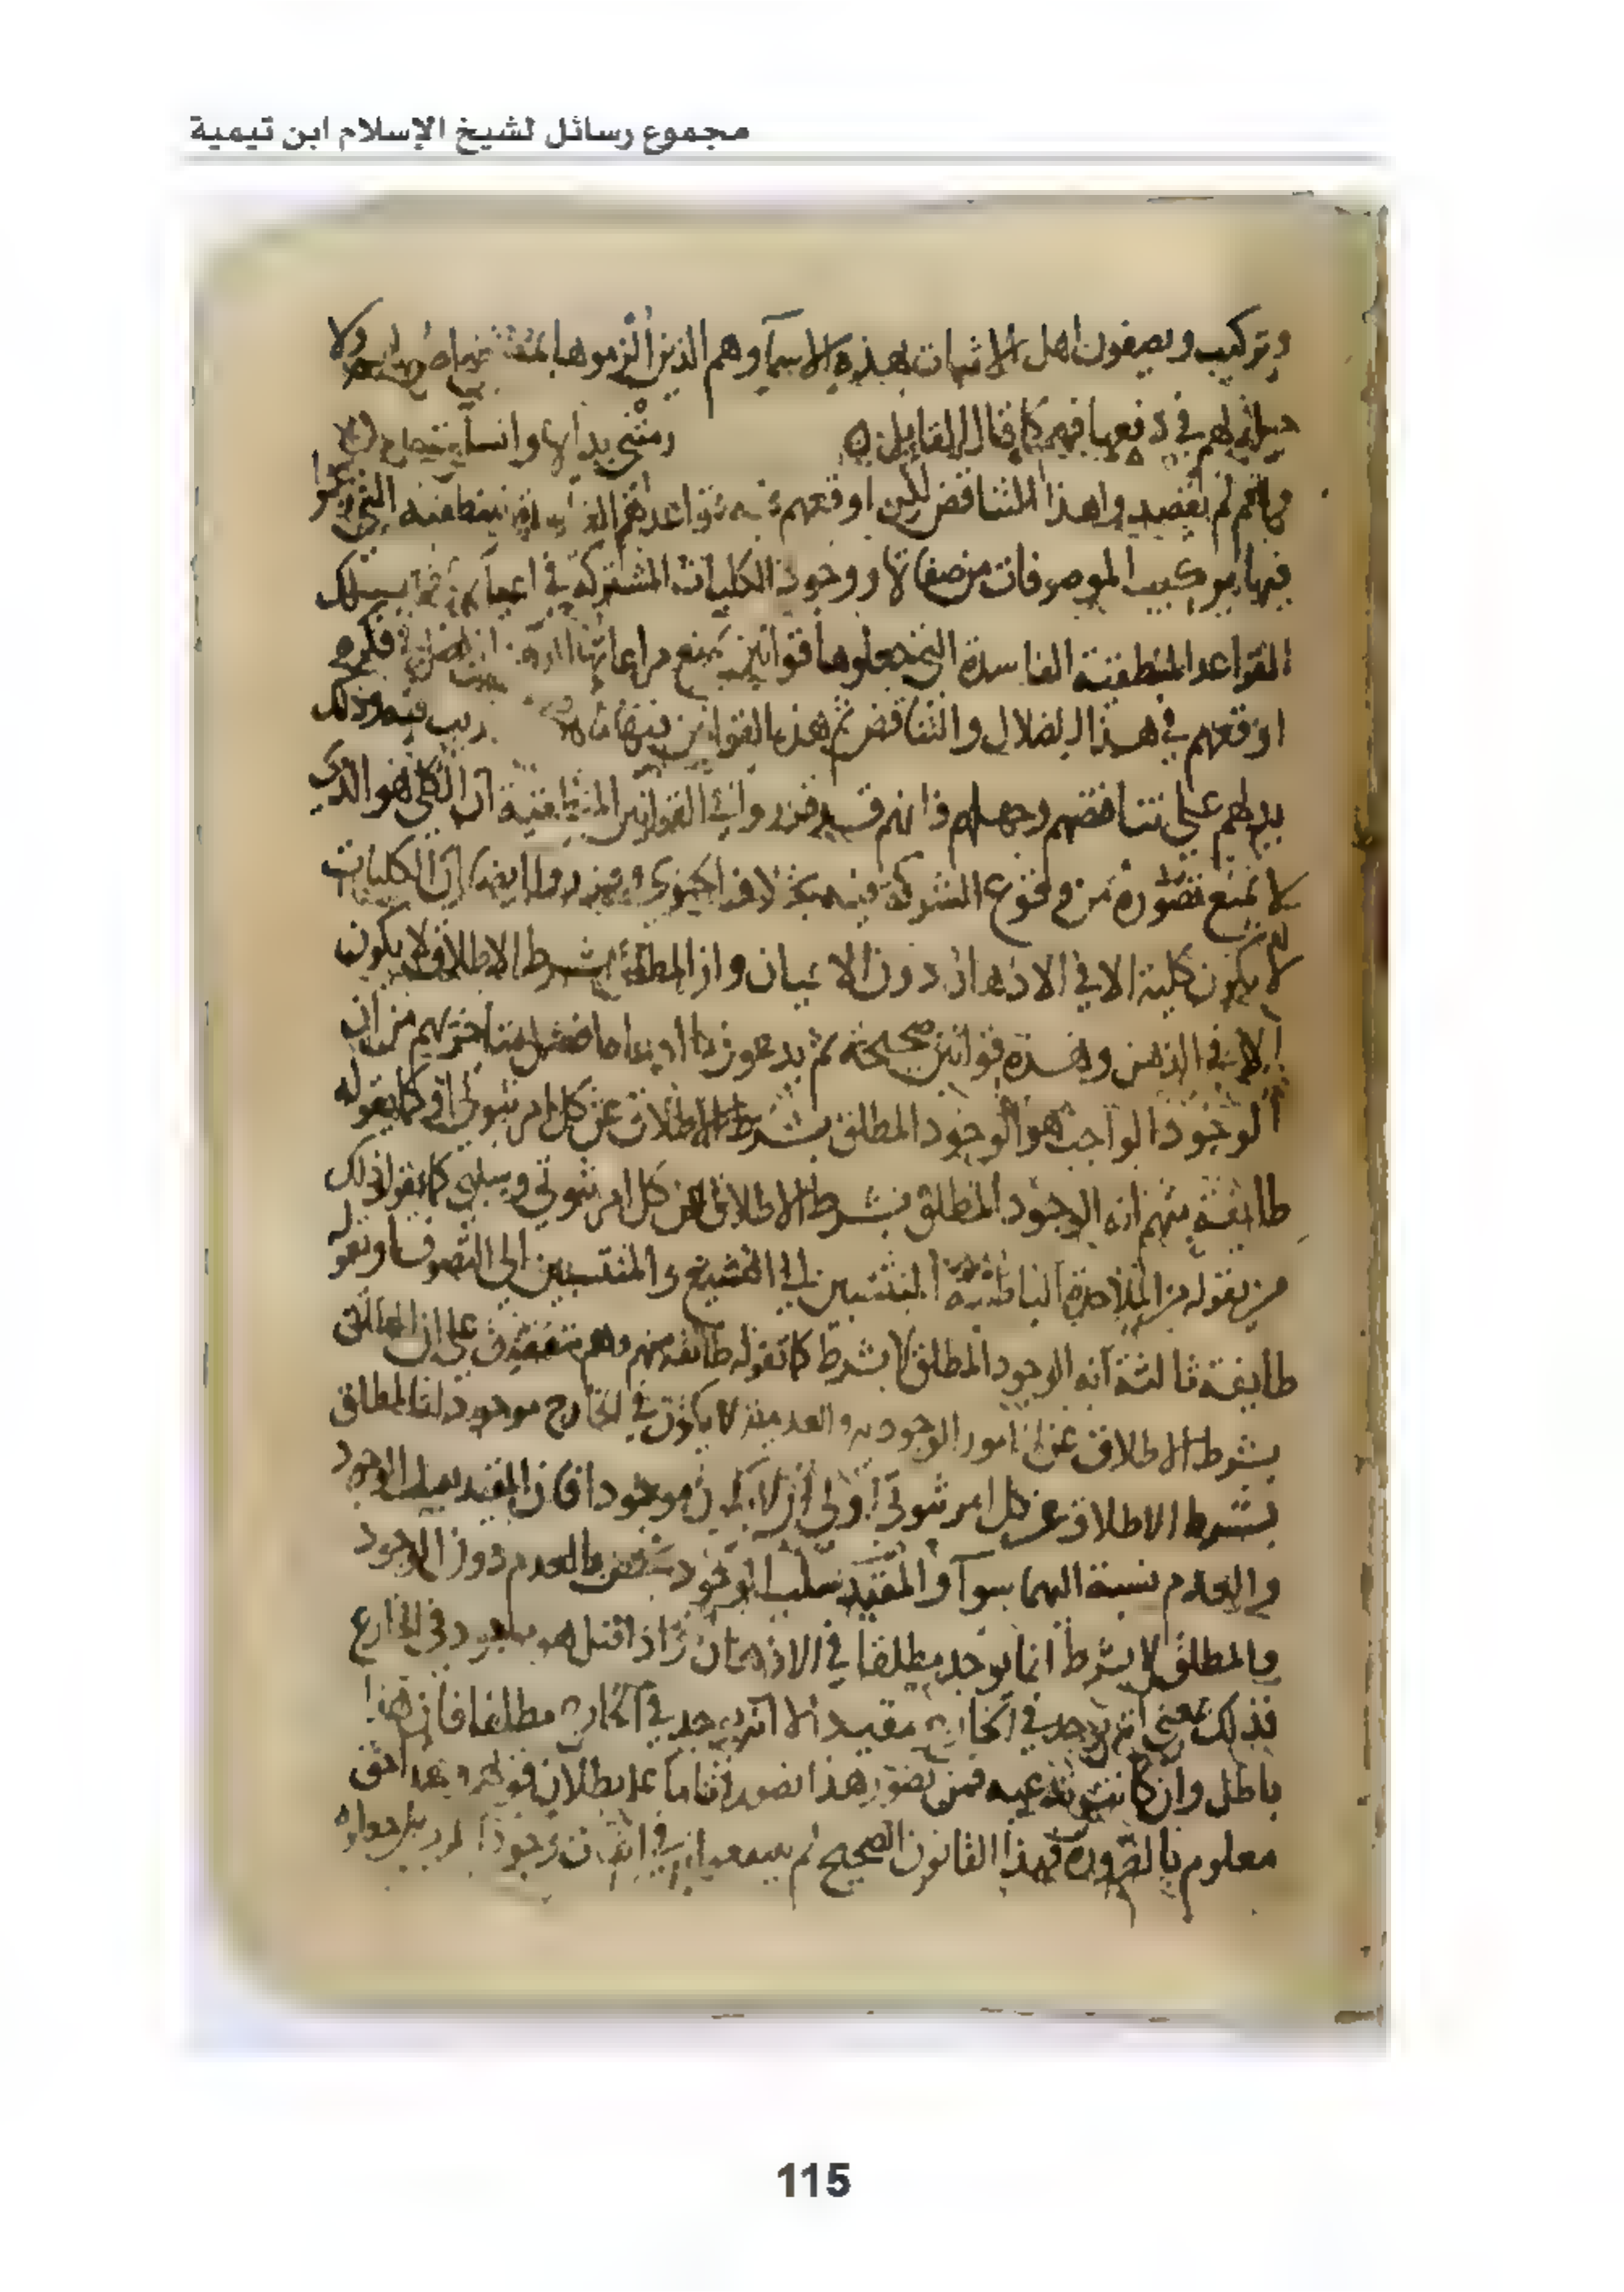 مجموع رسائل لشيخ الإسلام ابن تيمية
وتركيب ويصفون اهل الاثبات بهذه الاسمآ وهم الذين الزموها بمقتضى ولا
حيلة لهم في دفعها فهم كما قال القايل رمتني بدائها وانسلت
وانهم لم يقصدوا هذا التناقض لكن اوقعهم فيه قواعدهم المنطقية التي زعموا
فيها تركيب الموصوفات من صفاتها ووجود الكليات المشتركة في فبتلك
القواعد المنطقية الفاسدة التي جعلوها قوانين تمنع مراعاتها فكره
اوقعهم في هذا الضلال والتناقض ثم هذه القوانين فيها ما لا ريب فيه وذلك
يدلهم على تناقضهم وجهلهم فانهم قد قرروا في القوانين المنطقية ان الكلي هو الذي
لا يمنع تصوره من وقوع الشركة فيه بخلاف الجزي وقرروا ايضا ان الكليات
لا تكون كلية الا في الاذهان دون الاعيان وان المطلق بشرط الاطلاق لا يكون
الا في الذهن وهذه قوانين صحيحة ثم يدعون ما ادعاه افضل متاخريهم من ان
الوجود الواجب هو الوجود المطلق بشرط الاطلاق عن كل امر ثبوتي او كما يقوله
طايفة منهم انه الوجود المطلق بشرط الاطلاق عن كل امر ثبوتي وسلبي كما يقول ذلك
من يقوله من الملاحدة الباطنية المنتسبين الى التشيع والمنتسبين الى التصوف او تقول
طايفة ثالثة انه الوجود المطلق لا بشرط كما تقوله طايفة منهم وهم متفقون على ان المطلق
بشرط الاطلاق عن الامور الوجودية والعدمية لا يكون في الخارج موجودا فالمطلق
بشرط الاطلاق عن كل امر ثبوتي اولى ان لا يكون موجودا فان المقيد بسلب الوجود
والعدم نسبة اليهما سوآ والمقيد بسلب الوجود يختص بالعدم دون الوجود
والمطلق لا بشرط انما يوجد مطلقا في الاذهان واذا قيل هو موجود في الخارج
فذلك بمعنى انه يوجد في الخارج مقيدا لا انه يوجد في الخارج مطلقا فان هذا
باطل وان كانت تدعيه فمن تصور هذا تصورا تاما علم بطلان قولهم وهذا حق
معلوم بالضرورة فهذا القانون الصحيح لم ينتفعوا به في اثبات وجود الرب بل جعلوه
115